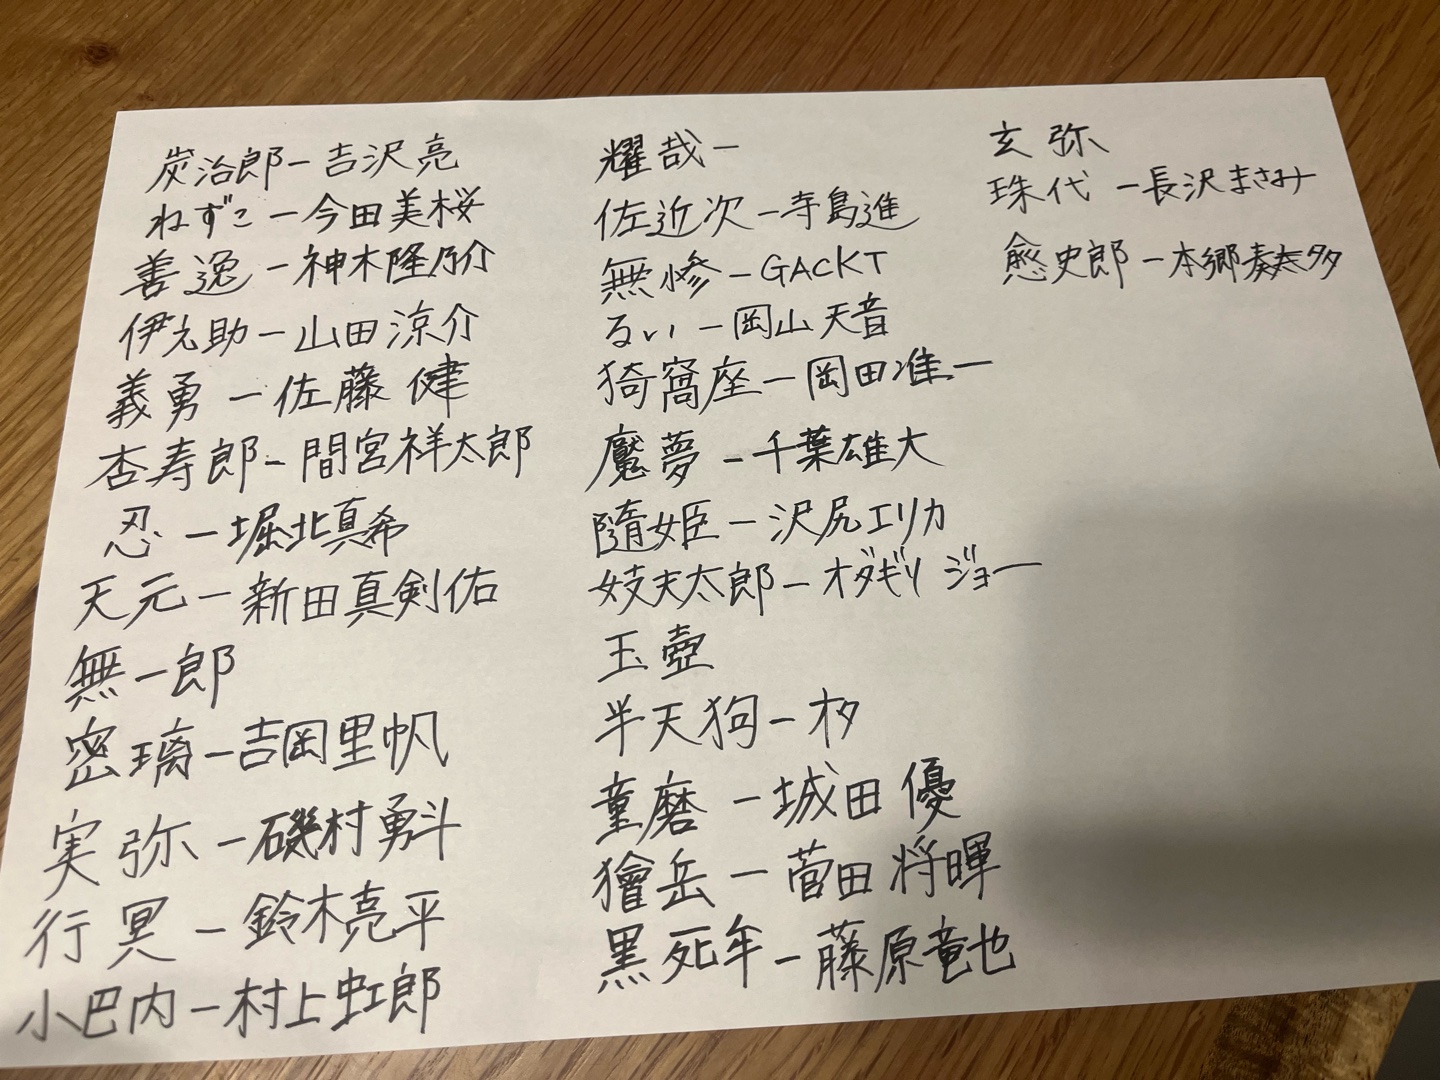 炭治郎ー吉沢亮
ねずこー今田美桜
善逸ー神木隆乃介
伊之助ー山田涼介
義勇ー佐藤健
杏寿郎ー間宮祥太郎
忍ー堀北真希
天元ー新田真剣佑
無一郎
密璃ー吉岡里帆
実弥ー磯村勇斗
行冥ー鈴木亮平
小巴内ー村上虹郎
耀哉ー
佐近次ー寺島進
無惨ーGACKT
るいー岡山天音
猗窩座ー岡田准一
魘夢ー千葉雄大
隋姫ー沢尻エリカ
妓夫太郎ーオダギリジョー
玉壺
半天狗ーオタ
童磨ー城田優
獪岳ー菅田将暉
黒死牟ー藤原竜也
玄弥
珠代ー長沢まさみ
愈史郎ー本郷奏太